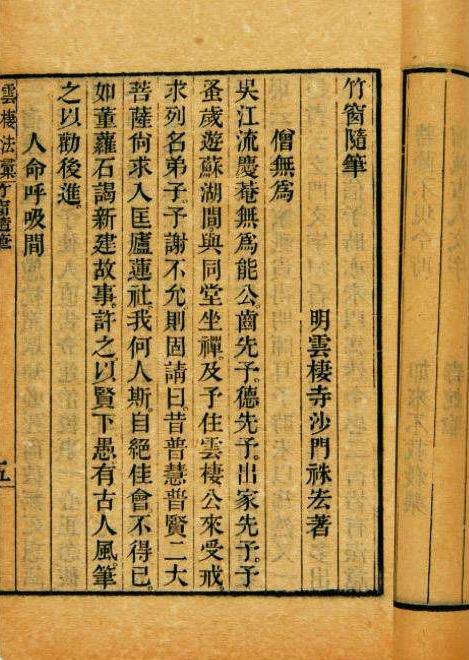 竹窗隨筆
明雲棲寺沙門袾宏著
僧無爲
吳江流慶菴無爲能公。齒先予。德先予。出家先予。予
蚤歲遊蘇湖間。與同堂坐禪。及予住雲棲。公來受戒。
求列名弟子。予謝不允。則固請曰。昔普慧普賢二大
菩薩。尙求入匡廬蓮社。我何人斯。自絕佳會。不得已。
如董蘿石謁新建故事。許之。以賢下愚。有古人風。筆
之以勸後進。
人命呼吸間
雲棲法彙竹窗隨筆
五